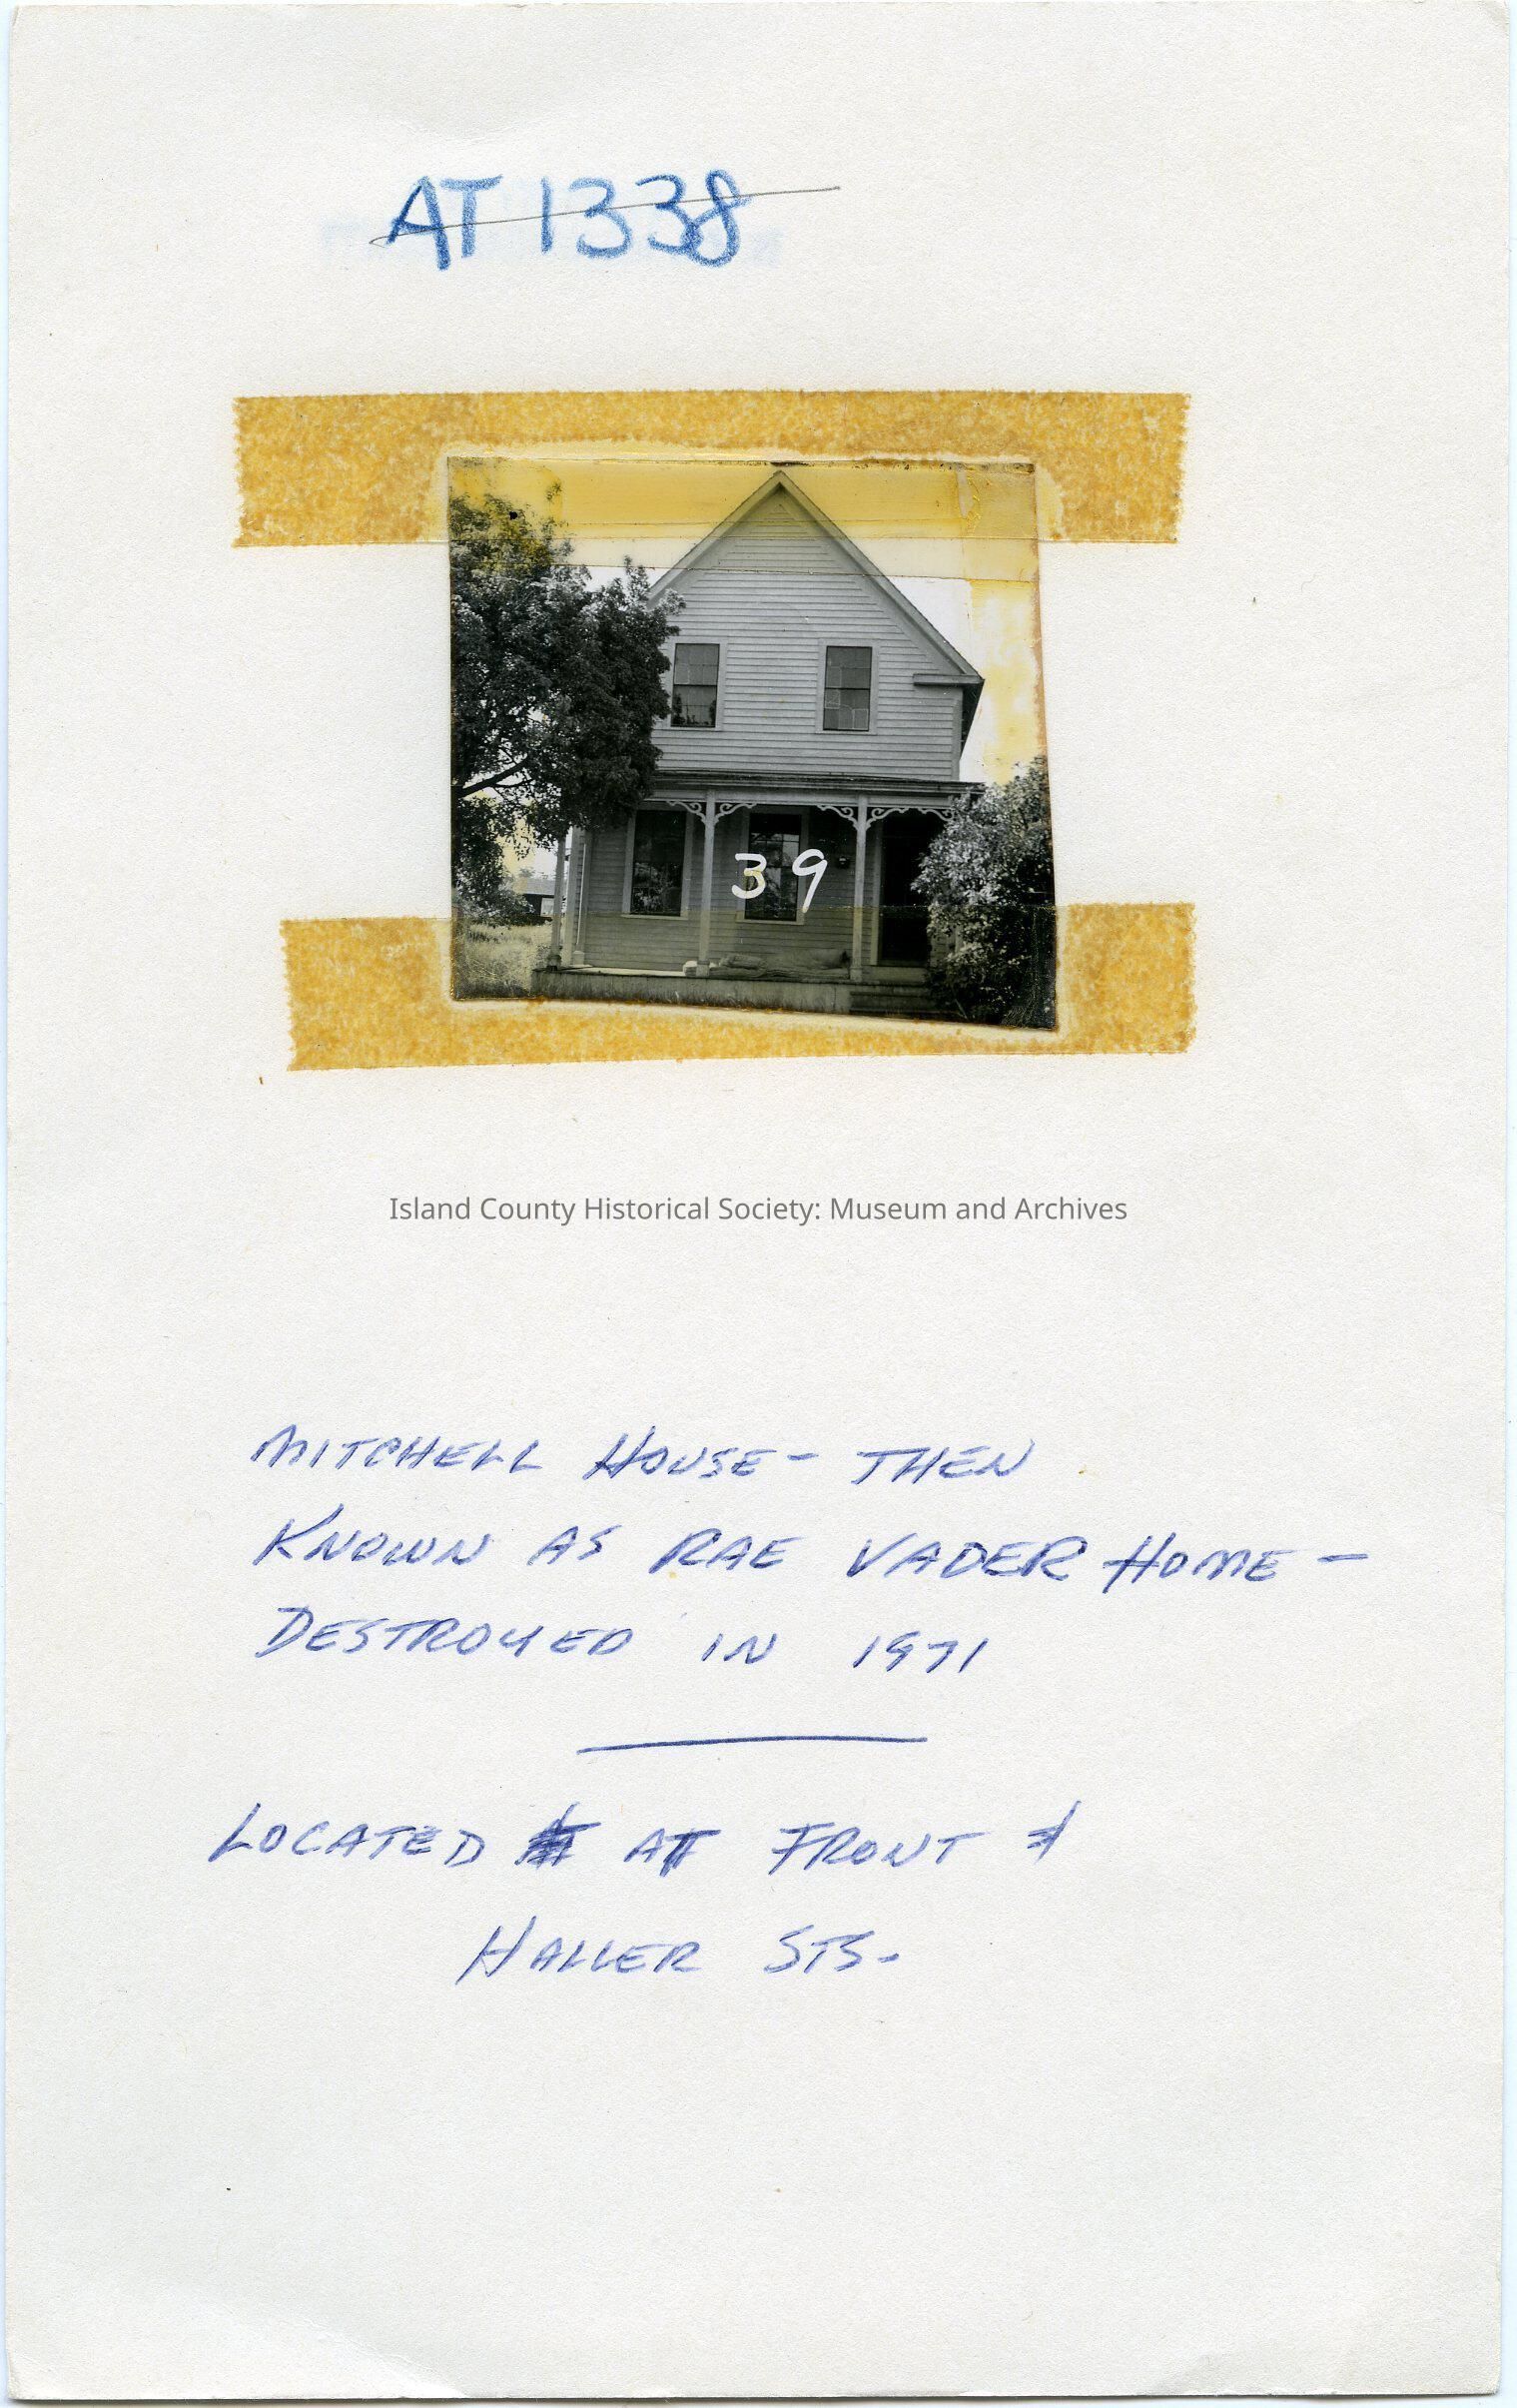 AT 1338
39
Island County Historical Society: Museum and Archives
MITCHELL HOUSE - THEN
KNOWN AS RAE VADER HOME -
DESTROYED IN 1971
LOCATED AT FRONT &
HALLER STS.